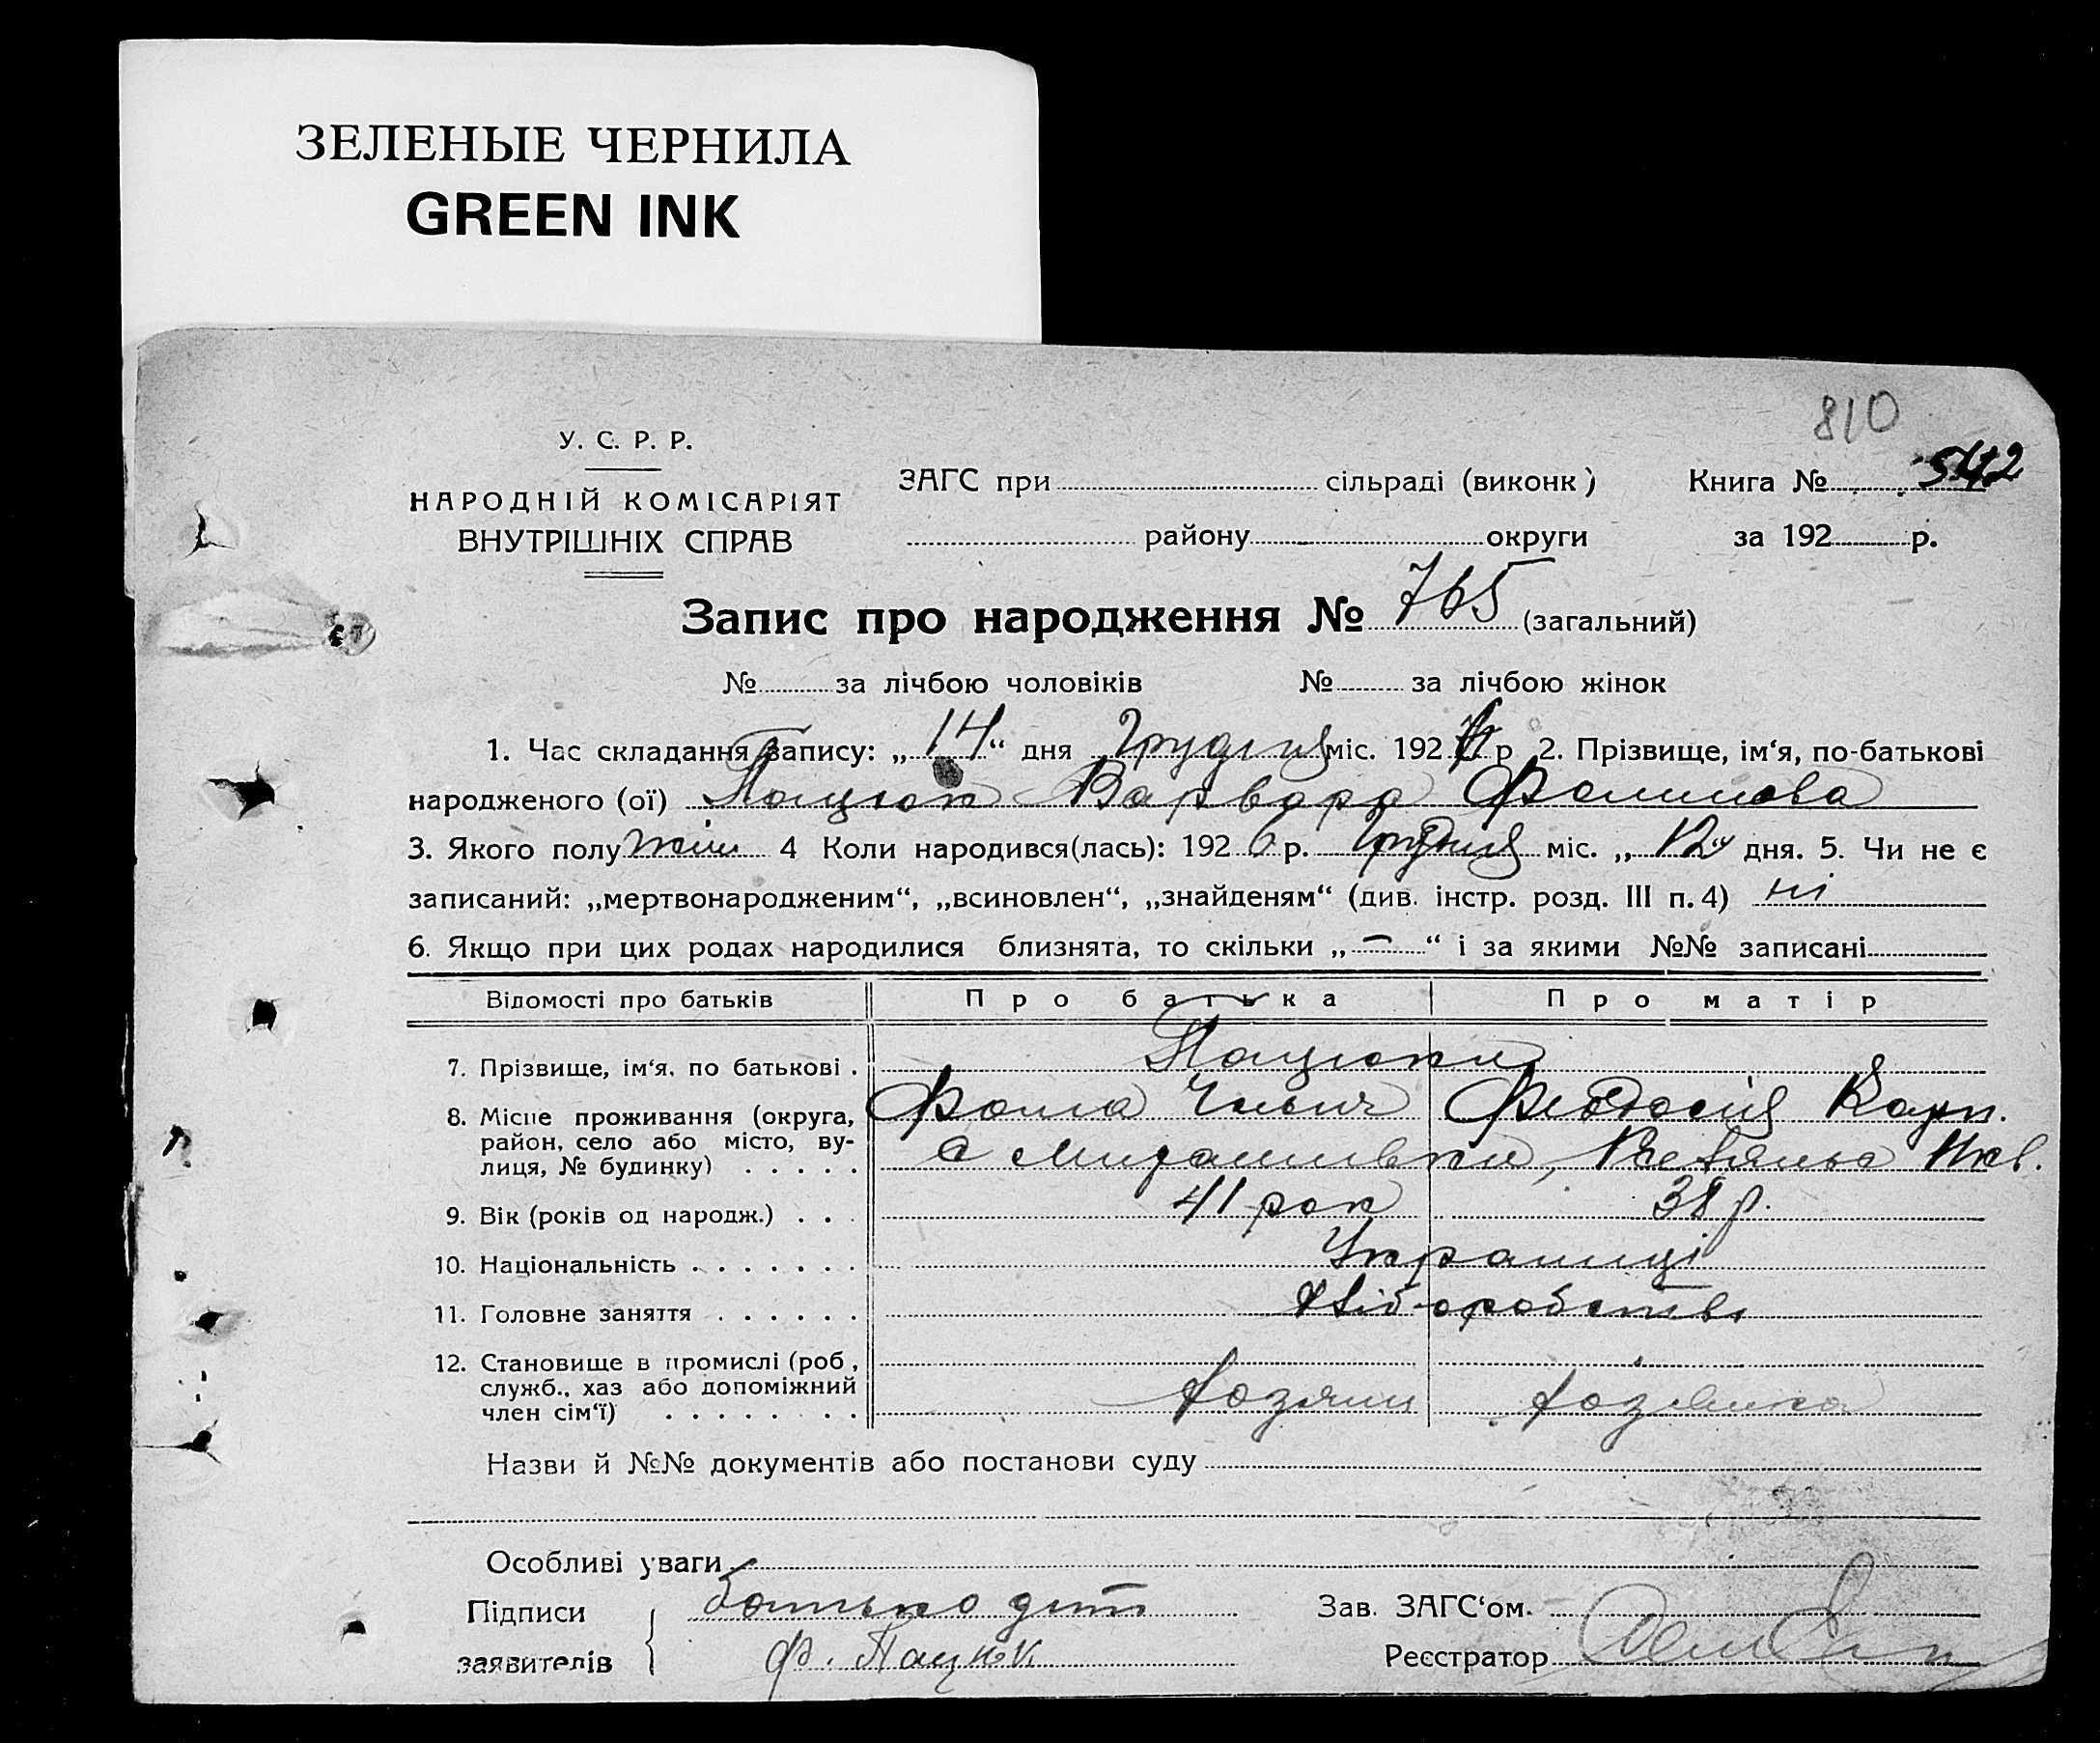 ЗЕЛЕНЫЕ ЧЕРНИЛА
GREEN INK
810
У. С. Р. Р.
НАРОДНІЙ КОМІСАРІЯТ
ВНУТРІШНІХ СПРАВ
ЗАГС при сільраді (виконк) Книга № 542
району округи за 192 р.
Запис про народження № 765 (загальний)
№ за лічбою чоловіків № за лічбою жінок
1. Час складання запису: „14“ дня Грудня міс. 192 р 2. Прізвище, ім‘я, по-батькові
народженого (ої) Пацюк Варвара Фомимова
3. Якого полу жін 4 Коли народився(лась): 192 6 р. Грудня міс. „12“ дня. 5. Чи не є
записаний: „мертвонародженим“, „всиновлен“, „знайденям“ (див. інстр. розд. III п. 4) ні
6. Якщо при цих родах народилися близнята, то скільки „—“ і за якими №№ записані
Відомості про батьків Про батька Про матір
7. Прізвище, ім‘я, по батькові . Пацюки
8. Місце проживання (округа, Фома Ільич Феодосія Карп.
район, село або місто, ву-
лиця, № будинку) . . . . . с
9. Вік (років од народж.) . . . 41 рок 38 р.
10. Національність . . . . . . . Українці
11. Головне заняття . . . . . . Хліборобство
12. Становище в промислі (роб.,
служб., хаз або допоміжний Хозяин Хозяйка
член сім‘ї) . . . . . . . .
Назви й №№ документів або постанови суду
Особливі уваги
Підписи батько дит Зав. ЗАГС‘ом.
заявителів ф. Пацюк Реєстратор